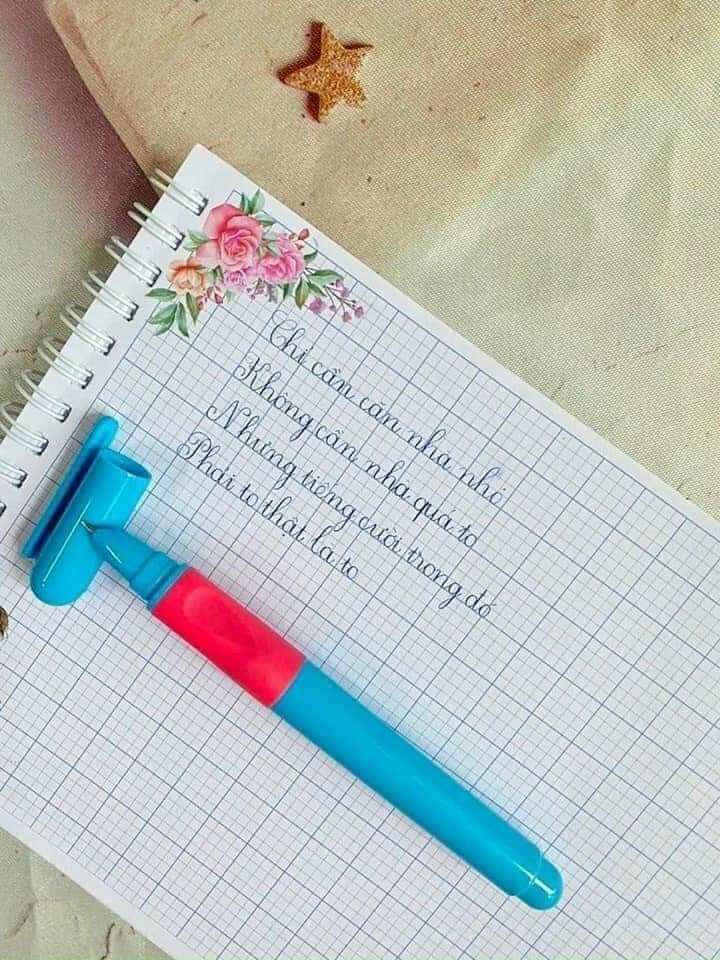 Chỉ cần căn nhà nhỏ
Không cần nhà quá to
Nhưng tiếng cười trong đó
Phải to thật là to